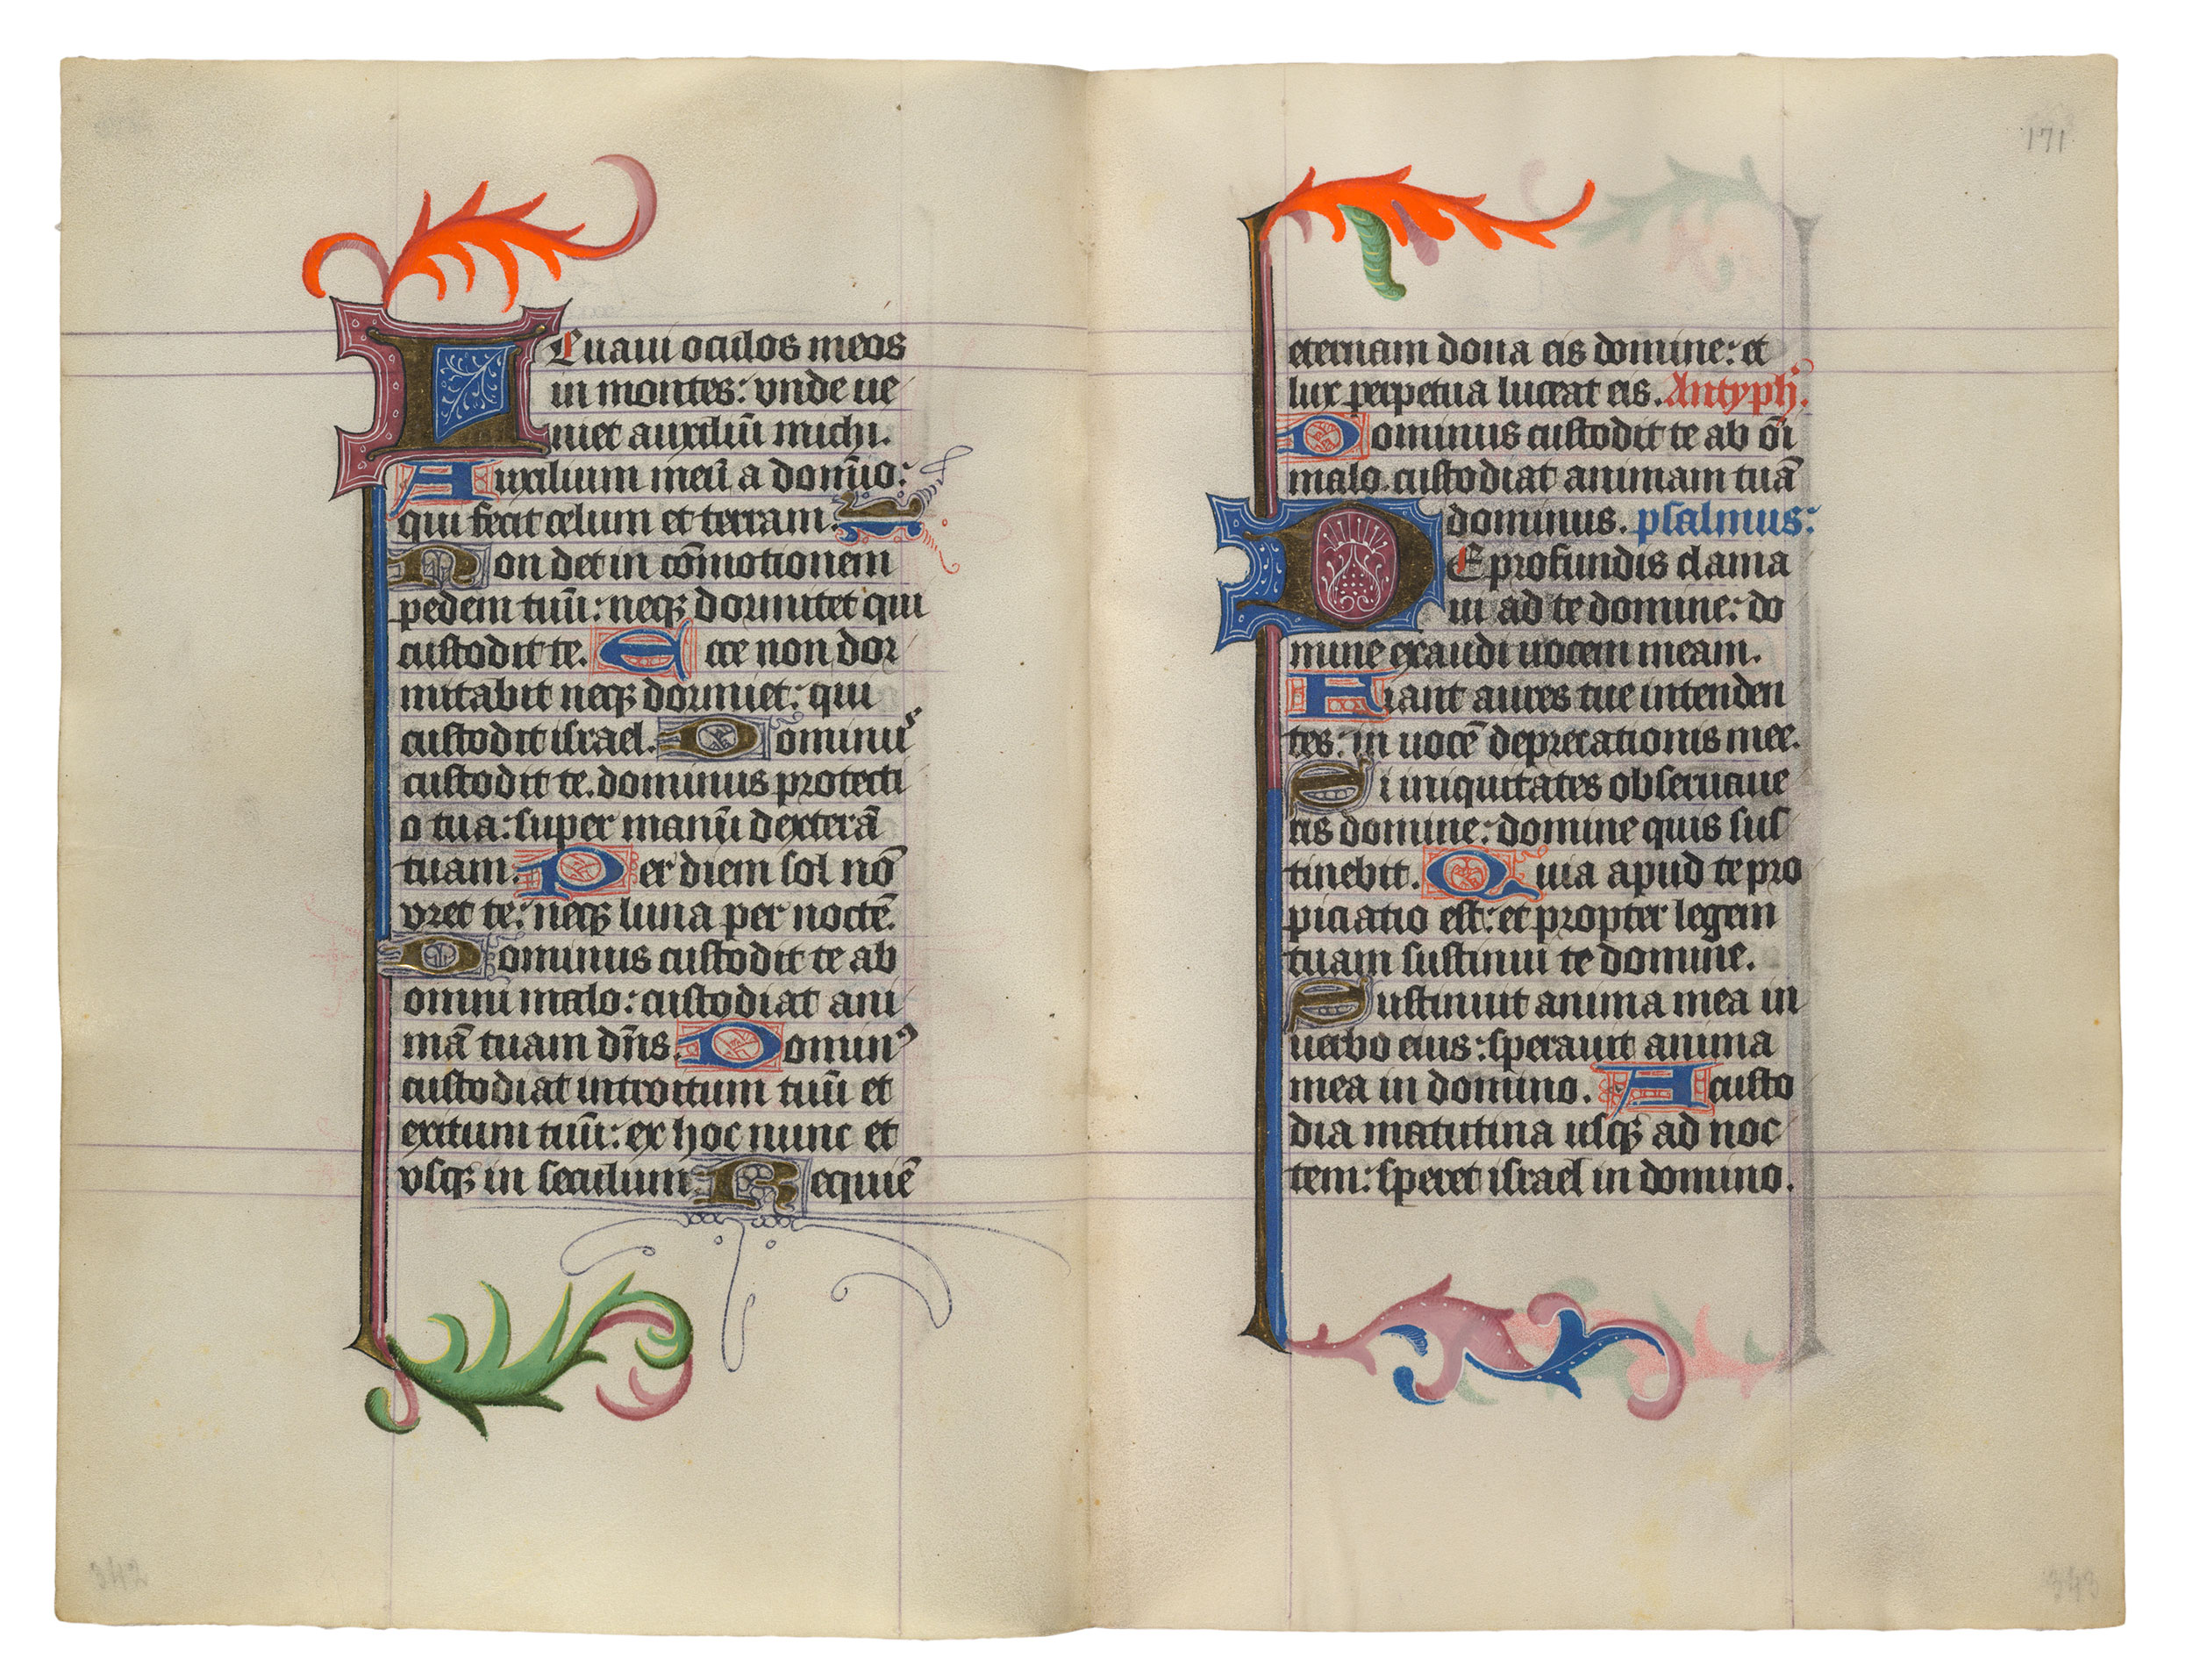 Leuaui oculos meos
in montes: vnde ue
niet auxiliū michi.
Auxilium meū a domīo:
qui fecit celum et terram.
Non det in cōmotionem
pedem tuū: neqꝫ dormitet qui
custodit te. Ecce non dor
mitabit neqꝫ dormiet: qui
custodit israel. Dominus
custodit te. dominus protecti
o tua: super manū dexterā
tuam. Per diem sol nō
vret te: neqꝫ luna per noctē.
Dominus custodit te ab
omni malo: custodiat ani
mā tuam dn̄s. Dominꝰ
custodiat introitum tuū et
exitum tuū: ex hoc nunc et
vsqꝫ in seculum Requiē
342
171
eternam dona eis domine: et
lux perpetua luceat eis. Antyph̄.
Dominus custodit te ab oī
malo custodiat animam tuā
dominus. psalmus:
DE profundis clama
ui ad te domine: do
mine exaudi uocem meam.
Fiant aures tue intenden
tes: in uocē deprecationis mee.
Si iniquitates obseruaue
ris domine: domine quis sus
tinebit. Quia apud te pro
piciatio est: et propter legem
tuam sustinui te domine.
Sustinuit anima mea in
uerbo eius: sperauit anima
mea in domino. A custo
dia matutina usqꝫ ad noc
tem: speret israel in domino.
343